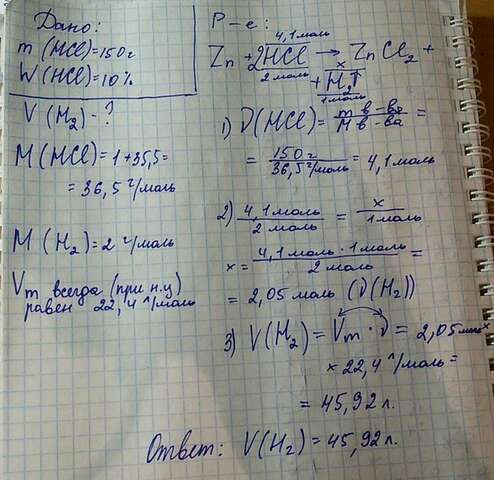 Дано:
m (HCl)=150г
W(HCl)=10%
V (H₂) - ?
M(HCl)=1+35,5=
=36,5 г/моль
M(H₂)=2 г/моль
Vm всегда (при н.у)
равен 22,4 л/моль
Р-е:
4,1моль x
Zn + 2HCl → ZnCl₂ +
2моль
+ H₂↑
1моль
1) ν(HCl) = m в-ва / M в-ва =
= 150г / 36,5 г/моль = 4,1моль
2) 4,1моль / 2моль = x / 1моль
x = 4,1моль · 1моль / 2моль =
= 2,05 моль (ν(H₂))
3) V(H₂) = Vm · ν = 2,05моль×
× 22,4 л/моль =
= 45,92 л.
Ответ: V(H₂) = 45,92л.